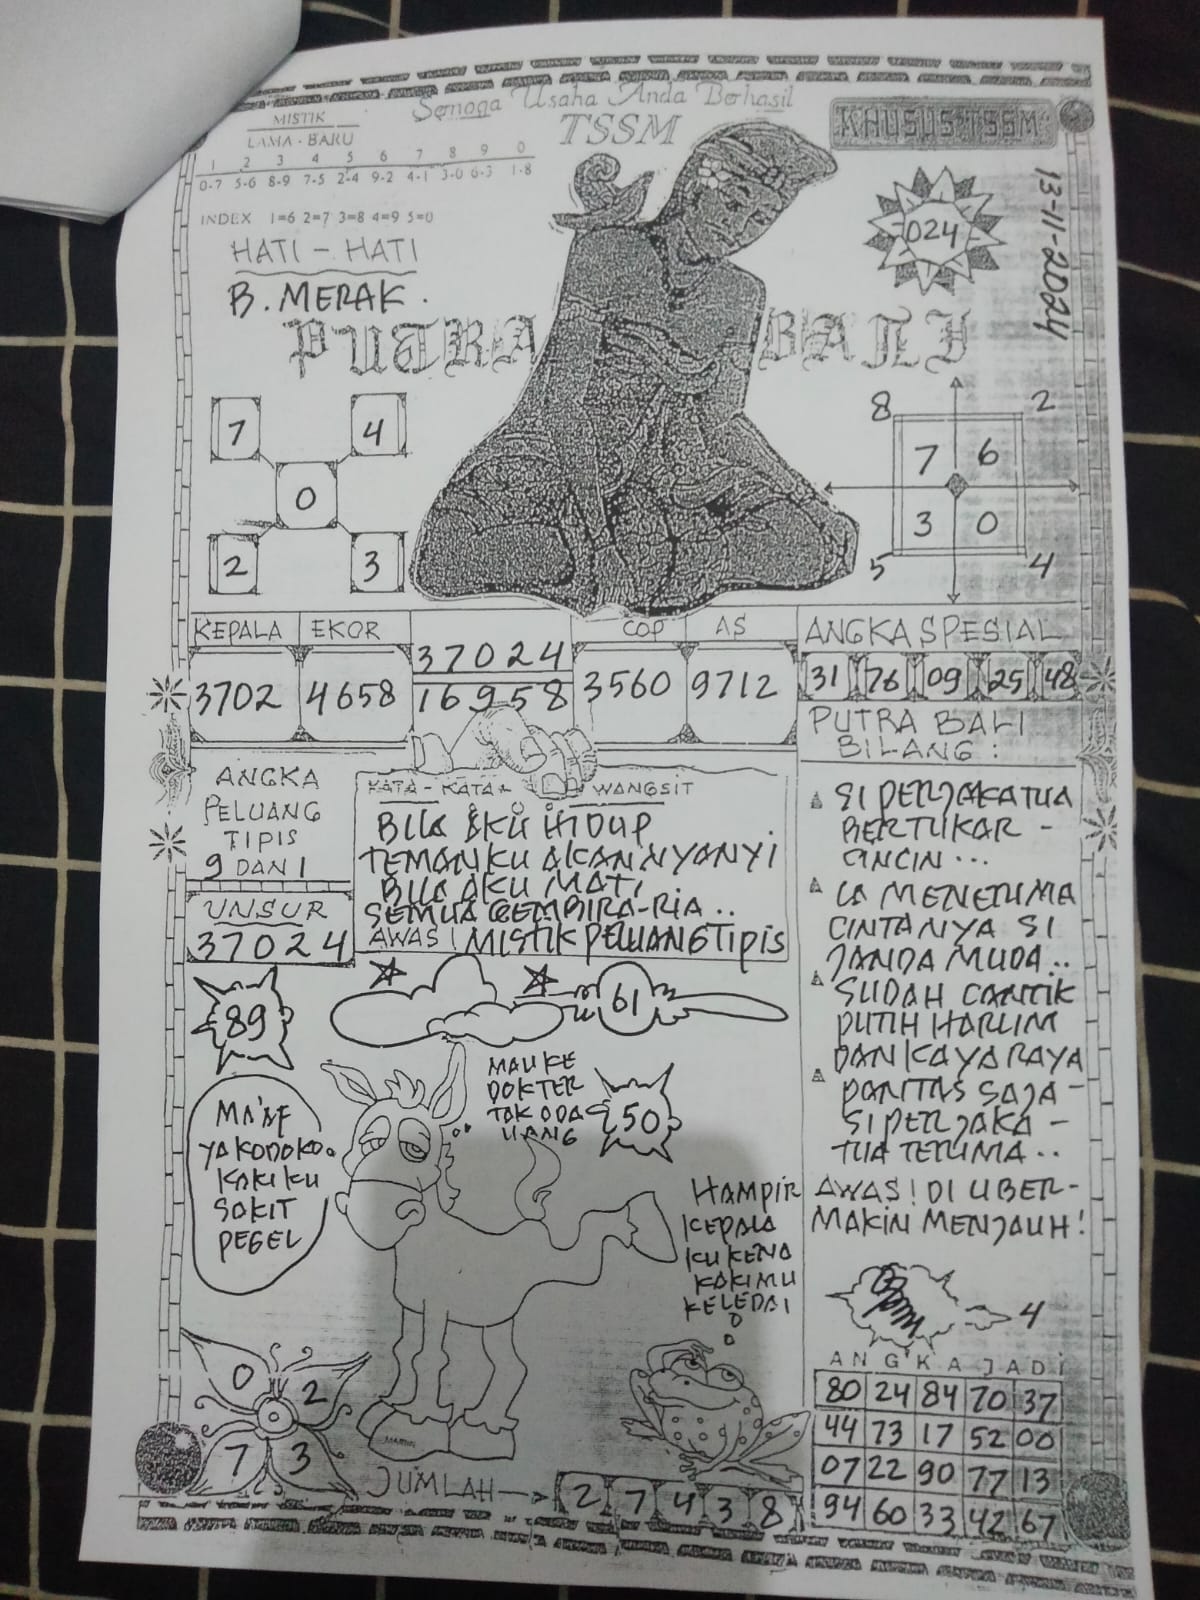 Semoga Usaha Anda Berhasil
TSSM
KHUSUS TSSM
MISTIK
LAMA - BARU
1 2 3 4 5 6 7 8 9 0
0-7 5-6 8-9 7-5 2-4 9-2 4-1 3-0 6-3 1-8
INDEX 1=6 2=7 3=8 4=9 5=0
HATI - HATI
B. MERAK.
024
13-11-2024
PUTRA BALI
7 4
0
2 3
8 2
7 6
3 0
5 4
KEPALA EKOR COP AS
3702 4658
37024
16958
3560 9712
ANGKA SPESIAL
31 76 09 25 48
PUTRA BALI
BILANG :
ANGKA
PELUANG
TIPIS
9 DAN 1
UNSUR
37024
KATA - KATA WANGSIT
BILA AKU HIDUP
TEMANKU AKAN NYANYI
BILA AKU MATI
SEMUA GEMBIRA-RIA..
AWAS! MISTIK PELUANG TIPIS
SI PERJAKA TUA
BERTUKAR -
CINCIN ...
IA MENERIMA
CINTANYA SI
JANDA MUDA..
SUDAH CANTIK
PUTIH HARUM
DAN KAYA RAYA
PANTAS SAJA -
SI PERJAKA -
TUA TERIMA..
AWAS! DI UBER-
MAKIN MENJAUH!
89
61
50
MAU KE
DOKTER
TAK ADA
UANG
MA'AF
YA KODOK
KAKI KU
SAKIT
PEGEL
HAMPIR
KEPALA
KU KENA
KAKIMU
KELEDAI
4
ANGKA JADI
80 24 84 70 37
44 73 17 52 00
07 22 90 77 13
94 60 33 42 67
0 2
7 3
JUMLAH
2 7 4 3 8